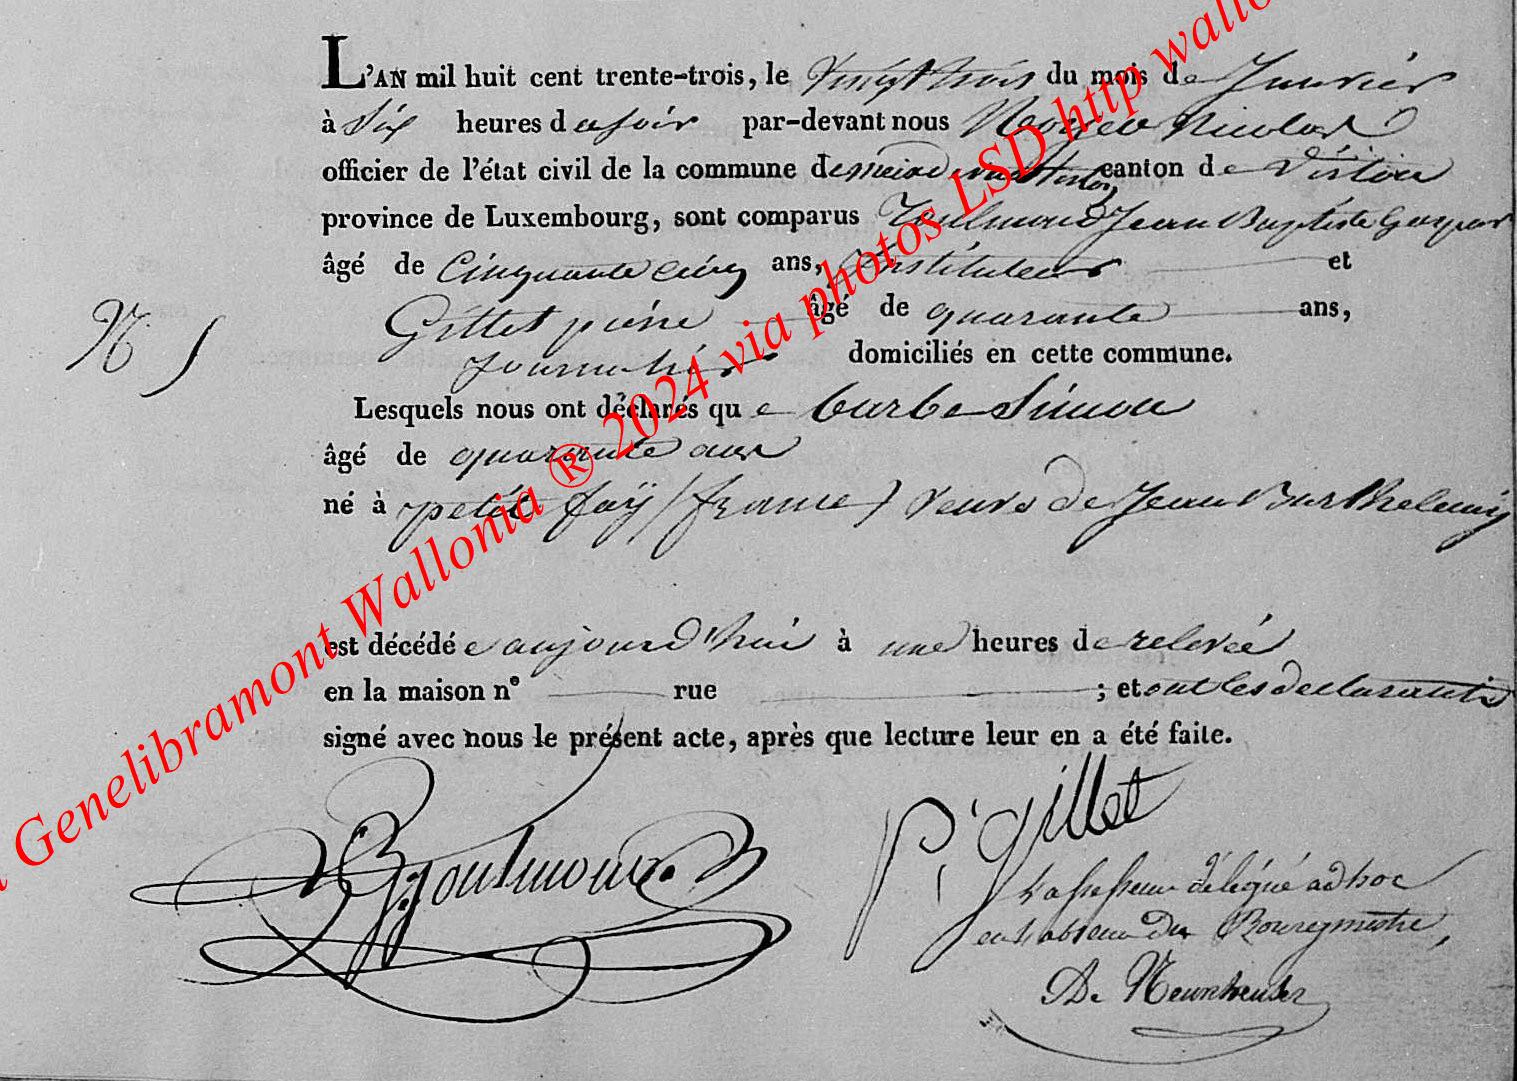 L'AN mil huit cent trente-trois, le vingt trois du mois de Janvier
à Six heures du soir par-devant nous Nicolas
officier de l'état civil de la commune de canton de Virton
province de Luxembourg, sont comparus Toulmond Jean Baptiste Gaspar
âgé de Cinquante cinq ans, Instituteur et
Gillet pierre âgé de quarante ans,
N. 5
Journalier domiciliés en cette commune.
Lesquels nous ont déclarés que barbe Simon
âgé de quarante ans
né à petit faÿ (france) veuve de Jean Barthelemy
est décédée aujourd'hui à une heures de relevée
en la maison n° rue ; et ont les declarants
signé avec nous le présent acte, après que lecture leur en a été faite.
Toulmond P. gillet
L'assesseur délégué ad hoc
en l'absence du Bourgmestre,
Genelibramont Wallonia ® 2024 via photos LSD http wallo